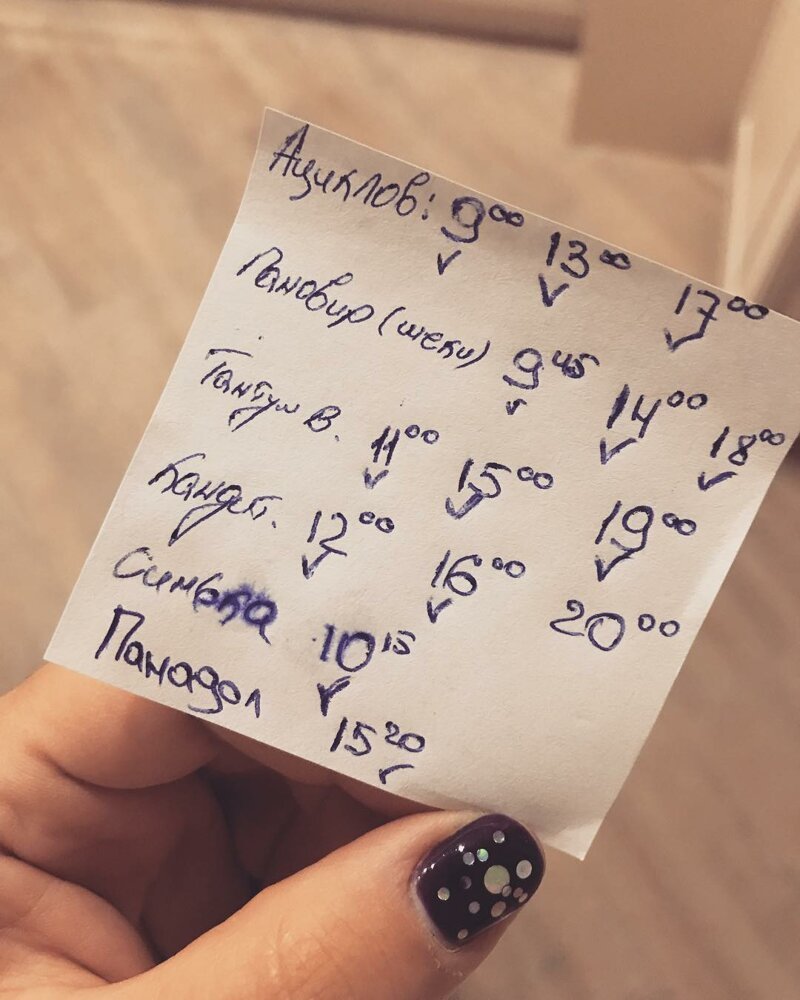 Ациклов: 9⁰⁰ 13⁰⁰ 17⁰⁰
Пановир (щеки) 9⁴⁵ 14⁰⁰ 18⁰⁰
Тантум В. 11⁰⁰ 15⁰⁰ 19⁰⁰
12⁰⁰ 16⁰⁰ 20⁰⁰
Синька 10¹⁵
Панадол 15²⁰